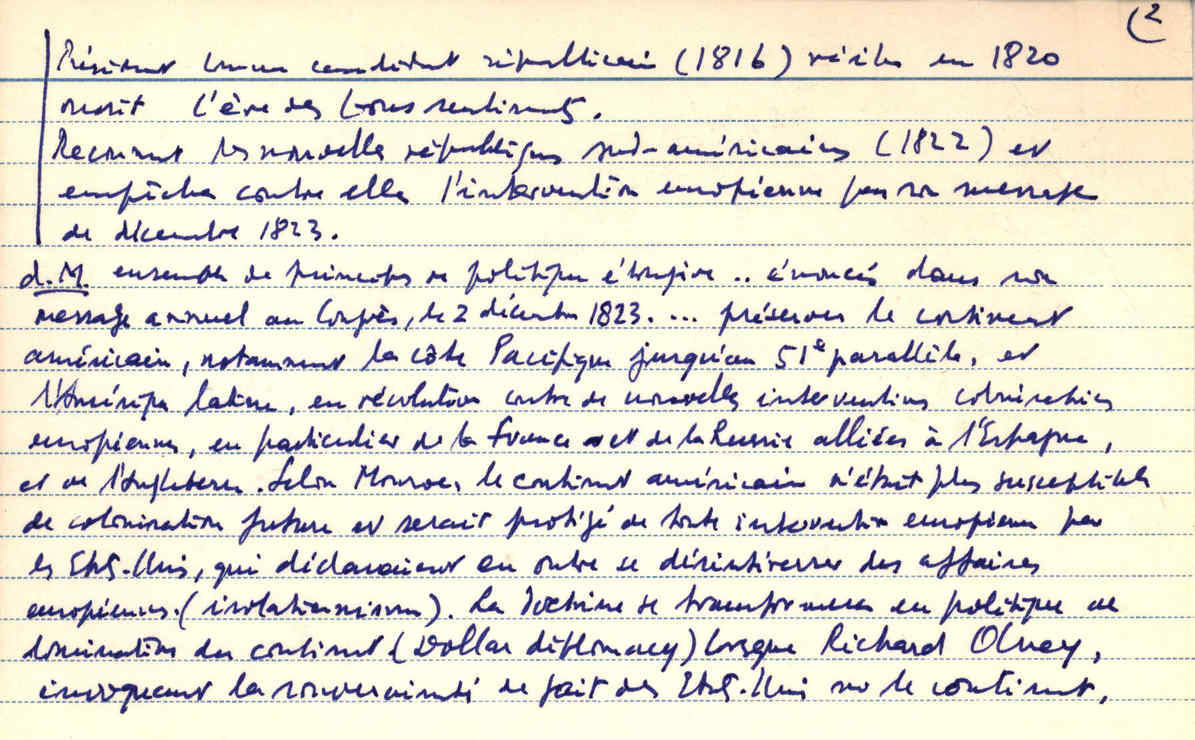 (2
Président comme candidat républicain (1816) réélu en 1820
ouvrit l'ère des bons sentiments.
Reconnut les nouvelles républiques sud-américaines (1822) et
empêcha contre elles l'intervention européenne par son message
de décembre 1823.
d.M. ensemble de principes de politique étrangère .. énoncés dans son
message annuel au Congrès, le 2 décembre 1823. ... préserver le continent
américain, notamment la côte Pacifique jusqu'au 51e parallèle, et
l'Amérique latine, en révolution contre de nouvelles interventions colonisatrices
européennes, en particulier de la France et de la Russie alliées à l'Espagne,
et de l'Angleterre. Selon Monroe, le continent américain n'était plus susceptible
de colonisation future et serait protégé de toute intervention européenne par
les Etats-Unis, qui déclaraient en outre se désintéresser des affaires
européennes. (isolationnisme). La doctrine se transforma en politique de
domination du continent (Dollar diplomacy) lorsque Richard Olney,
invoquant la souveraineté de fait des Etats-Unis sur le continent,